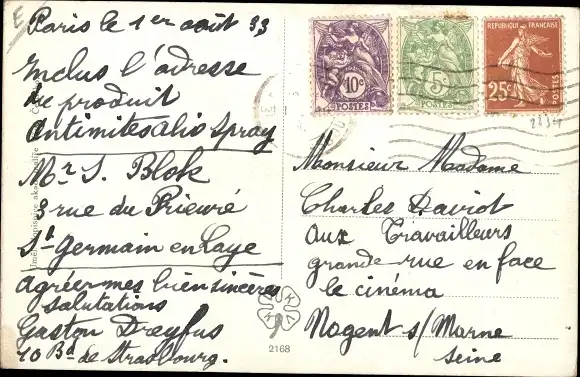 E
Paris le 1er août 33
Inclus l'adresse
du produit
antimites alio spray
Mr S. Blok
8 rue du Prieuré
St Germain en Laye
agréer mes bien sincères
salutations
Gaston Dreyfus
10 Bd de Strasbourg.
2168
10c
POSTES
5c
POSTES
REPUBLIQUE FRANÇAISE
25c
POSTES
Monsieur Madame
Charles Daviot
aux Travailleurs
grande rue en face
le cinéma
Nogent s/Marne
Seine